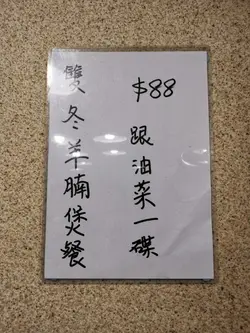 $88
雙冬羊腩煲餐
跟油菜一碟